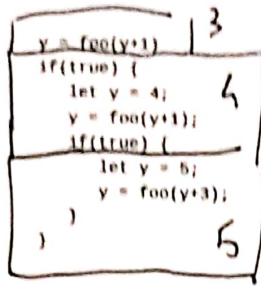 3
y = foo(y+1)
if(true) {
let y = 4;
y = foo(y+1);
4
if(true) {
let y = 5;
y = foo(y+3);
}
}
5